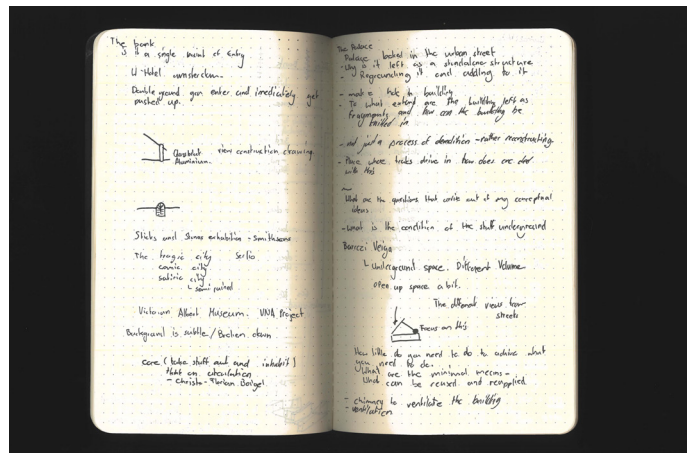 The bank
is a single point of entry
U Hotel amsterdam
Double ground you enter and imediately get
pushed up.
Aluminium.
view construction drawing
Sticks and Stones exhibition - Smithsons
The tragic city Serlio
comic city
satiric city
Victorian Albert Museum. UNA Project
Background is subtle / Broken down
core (take stuff out and inhabit)
that an circulation
- Christo-Florian Beigel
The Palace
Palace locked in the urban street
- Why is it left as a standalone structure
- Regrounding it and adding to it
- make a hole in building
- To what extend are the building left as
fragments and how can the building be
- not just a process of demolition - rather reconstructing
- Place where trucks drive in how does one deal
with this
What are the questions that come out of my conceptual
ideas.
- What is the condition of the stuff underground
Barozzi Veiga
Underground space. Different Volume
open up space a bit.
The different views from
streets
Focus on this
How little do you need to do to achive what
you need to do.
- What are the minimal means -
What can be reused and reapplied
- chimney to ventilate the building
- ventilation